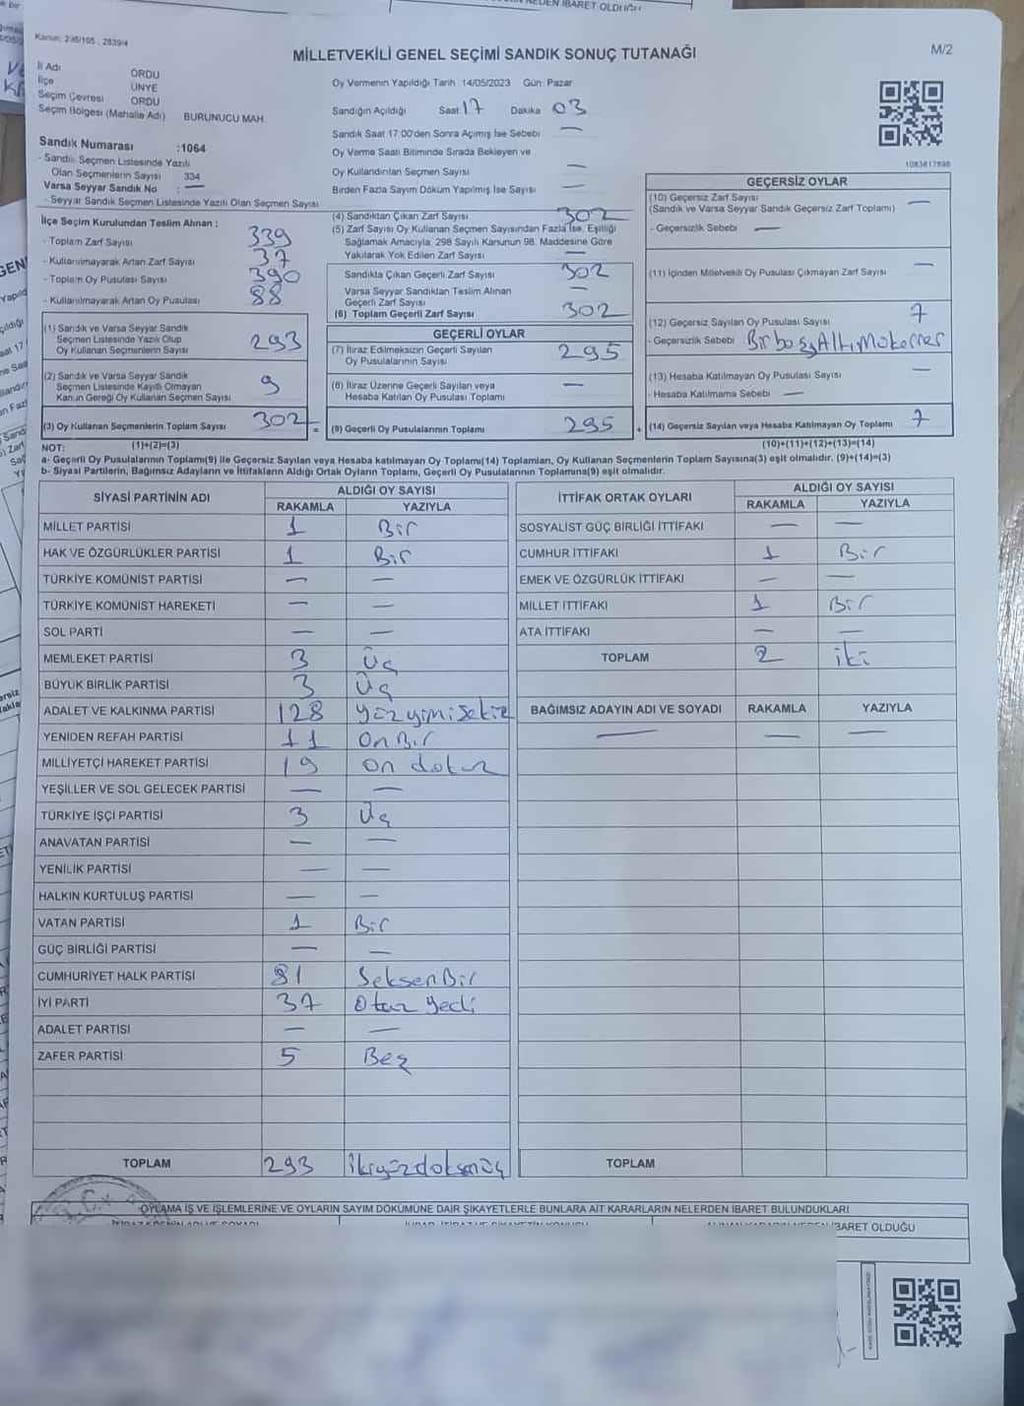 NEDEN İBARET OLDUĞU
Kanun: 298/105 , 2839/4
MİLLETVEKİLİ GENEL SEÇİMİ SANDIK SONUÇ TUTANAĞI
M/2
İl Adı ORDU
İlçe ÜNYE
Seçim Çevresi ORDU
Seçim Bölgesi (Mahalle Adı) BURUNUCU MAH.
Sandık Numarası :1064
- Sandık Seçmen Listesinde Yazılı
Olan Seçmenlerin Sayısı 334
Varsa Seyyar Sandık No : —
- Seyyar Sandık Seçmen Listesinde Yazılı Olan Seçmen Sayısı
Oy Vermenin Yapıldığı Tarih :14/05/2023 Gün: Pazar
Sandığın Açıldığı Saat 17 Dakika 03
Sandık Saat 17:00'den Sonra Açılmış İse Sebebi —
Oy Verme Saati Bitiminde Sırada Bekleyen ve
Oy Kullandırılan Seçmen Sayısı —
Birden Fazla Sayım Döküm Yapılmış İse Sayısı —
İlçe Seçim Kurulundan Teslim Alınan :
- Toplam Zarf Sayısı 339
- Kullanılmayarak Artan Zarf Sayısı 37
- Toplam Oy Pusulası Sayısı 390
- Kullanılmayarak Artan Oy Pusulası 88
(1) Sandık ve Varsa Seyyar Sandık
Seçmen Listesinde Yazılı Olup
Oy Kullanan Seçmenlerin Sayısı 293
(2) Sandık ve Varsa Seyyar Sandık
Seçmen Listesinde Kayıtlı Olmayan
Kanun Gereği Oy Kullanan Seçmen Sayısı 9
(3) Oy Kullanan Seçmenlerin Toplam Sayısı 302 =
(4) Sandıktan Çıkan Zarf Sayısı 302
(5) Zarf Sayısı Oy Kullanan Seçmen Sayısından Fazla İse, Eşitliği
Sağlamak Amacıyla, 298 Sayılı Kanunun 98. Maddesine Göre
Yakılarak Yok Edilen Zarf Sayısı —
Sandıkla Çıkan Geçerli Zarf Sayısı 302
Varsa Seyyar Sandıktan Teslim Alınan
Geçerli Zarf Sayısı —
(6) Toplam Geçerli Zarf Sayısı 302
GEÇERLİ OYLAR
(7) İtiraz Edilmeksizin Geçerli Sayılan
Oy Pusulalarının Sayısı 295
(8) İtiraz Üzerine Geçerli Sayılan veya
Hesaba Katılan Oy Pusulası Toplamı —
(9) Geçerli Oy Pusulalarının Toplamı 295 +
GEÇERSİZ OYLAR
(10) Geçersiz Zarf Sayısı
(Sandık ve Varsa Seyyar Sandık Geçersiz Zarf Toplamı) —
- Geçersizlik Sebebi —
(11) İçinden Milletvekili Oy Pusulası Çıkmayan Zarf Sayısı —
(12) Geçersiz Sayılan Oy Pusulası Sayısı 7
- Geçersizlik Sebebi Bir boş, Altı Mükerrer
(13) Hesaba Katılmayan Oy Pusulası Sayısı —
- Hesaba Katılmama Sebebi —
(14) Geçersiz Sayılan veya Hesaba Katılmayan Oy Toplamı 7
NOT: (1)+(2)=(3) (10)+(11)+(12)+(13)=(14)
a- Geçerli Oy Pusulalarının Toplamı(9) ile Geçersiz Sayılan veya Hesaba katılmayan Oy Toplamı(14) Toplamları, Oy Kullanan Seçmenlerin Toplam Sayısına(3) eşit olmalıdır. (9)+(14)=(3)
b- Siyasi Partilerin, Bağımsız Adayların ve İttifakların Aldığı Ortak Oyların Toplamı, Geçerli Oy Pusulalarının Toplamına(9) eşit olmalıdır.
SİYASİ PARTİNİN ADI ALDIĞI OY SAYISI
RAKAMLA YAZIYLA
MİLLET PARTİSİ 1 Bir
HAK VE ÖZGÜRLÜKLER PARTİSİ 1 Bir
TÜRKİYE KOMÜNİST PARTİSİ — —
TÜRKİYE KOMÜNİST HAREKETİ — —
SOL PARTİ — —
MEMLEKET PARTİSİ 3 Üç
BÜYÜK BİRLİK PARTİSİ 3 Üç
ADALET VE KALKINMA PARTİSİ 128 Yüzyirmi Sekiz
YENİDEN REFAH PARTİSİ 11 On Bir
MİLLİYETÇİ HAREKET PARTİSİ 19 on dokuz
YEŞİLLER VE SOL GELECEK PARTİSİ — —
TÜRKİYE İŞÇİ PARTİSİ 3 Üç
ANAVATAN PARTİSİ — —
YENİLİK PARTİSİ — —
HALKIN KURTULUŞ PARTİSİ — —
VATAN PARTİSİ 1 Bir
GÜÇ BİRLİĞİ PARTİSİ — —
CUMHURİYET HALK PARTİSİ 81 Seksen Bir
İYİ PARTİ 37 Otuz Yedi
ADALET PARTİSİ — —
ZAFER PARTİSİ 5 Beş
TOPLAM 293 İkiyüzdoksanüç
İTTİFAK ORTAK OYLARI ALDIĞI OY SAYISI
RAKAMLA YAZIYLA
SOSYALİST GÜÇ BİRLİĞİ İTTİFAKI — —
CUMHUR İTTİFAKI 1 Bir
EMEK VE ÖZGÜRLÜK İTTİFAKI — —
MİLLET İTTİFAKI 1 Bir
ATA İTTİFAKI — —
TOPLAM 2 iki
BAĞIMSIZ ADAYIN ADI VE SOYADI RAKAMLA YAZIYLA
— — —
TOPLAM
OYLAMA İŞ VE İŞLEMLERİNE VE OYLARIN SAYIM DÖKÜMÜNE DAİR ŞİKAYETLERLE BUNLARA AİT KARARLARIN NELERDEN İBARET BULUNDUKLARI
İBARET OLDUĞU